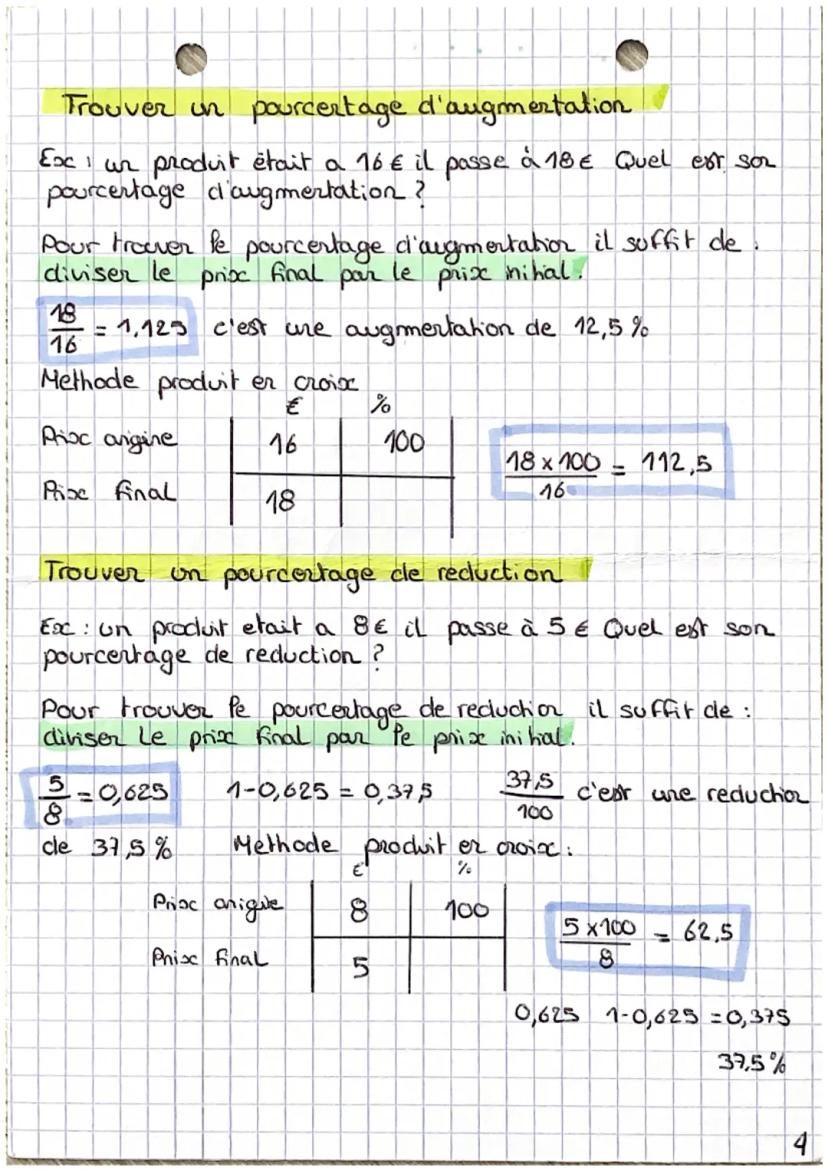 Trouver un pourcentage d'augmentation
Ex : un produit était a 16 € il passe à 18 € Quel est son
pourcentage d'augmentation ?
Pour trouver le pourcentage d'augmentation il suffit de :
diviser le prix final par le prix initial.
18/16 = 1,125 c'est une augmentation de 12,5 %
Methode produit en croix
€ %
Prix origine 16 100
18 x 100 / 16 = 112,5
Prix final 18
Trouver un pourcentage de reduction
Ex : un produit etait a 8 € il passe à 5 € Quel est son
pourcentage de reduction ?
Pour trouver le pourcentage de reduction il suffit de :
diviser le prix final par le prix initial.
5/8 = 0,625 1-0,625 = 0,375 37,5/100 c'est une reduction
de 37,5 % Methode produit en croix :
€ %
Prix origine 8 100
5 x 100 / 8 = 62,5
Prix final 5
0,625 1-0,625 = 0,375
37,5 %
4